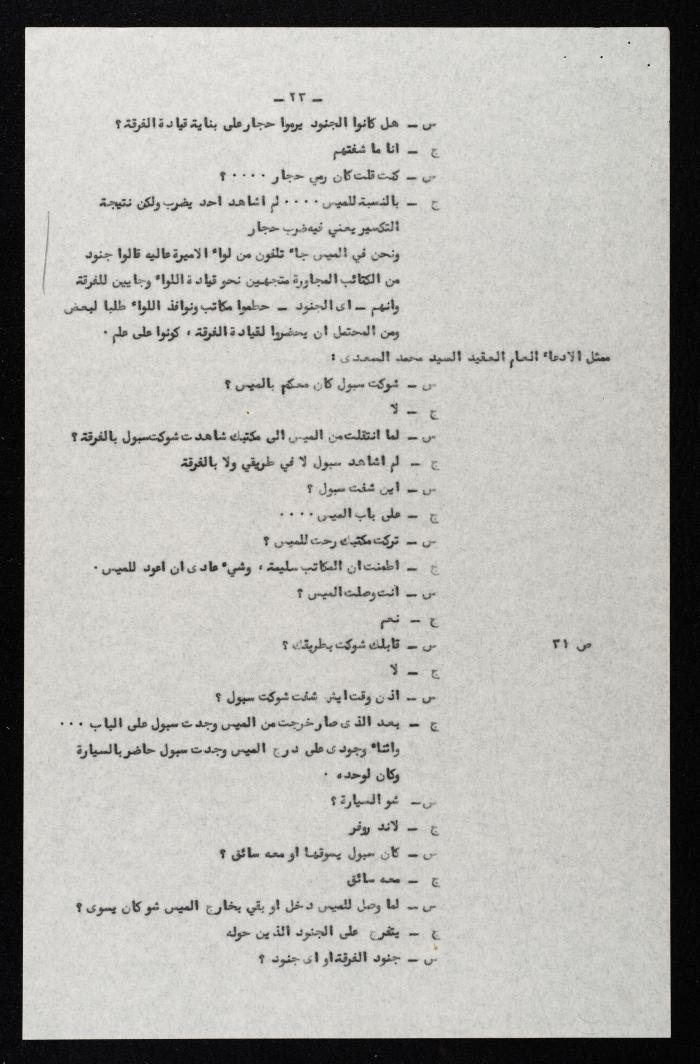 ـ ٢٣ ـ
س ـ هل كانوا الجنود يرموا حجار على بناية قيادة الفرقة ؟
ج ـ انا ما شفتهم
س ـ كنت قلت كان رمي حجار ٠٠٠٠ ؟
ج ـ بالنسبة للميس ٠٠٠٠ لم اشاهد احد يضرب ولكن نتيجة
التكسير يعني فيه ضرب حجار
ونحن في الميس جاء تلفون من لواء الاميرة عاليه قالوا جنود
من الكتائب المجاورة متجهين نحو قيادة اللواء وجايين للفرقة
وانهم ـ اى الجنود ـ حطموا مكاتب ونوافذ اللواء طلبا لبعض
ومن المحتمل ان يحضروا لقيادة الفرقة ، كونوا على علم ٠
ممثل الادعاء العام العقيد السيد محمد السعدى :
س ـ شوكت سبول كان معكم بالميس ؟
ج ـ لا
س ـ لما انتقلت من الميس الى مكتبك شاهدت شوكت سبول بالفرقة ؟
ج ـ لم اشاهد سبول لا في طريقي ولا بالفرقة
س ـ اين شفت سبول ؟
ج ـ على باب الميس ٠٠٠٠
س ـ تركت مكتبك رحت للميس ؟
ج ـ اطمنت ان المكاتب سليمة ، وشيء عادى ان اعود للميس ٠
س ـ انت وصلت الميس ؟
ج ـ نعم
ص ٣١ س ـ قابلك شوكت بطريقك ؟
ج ـ لا
س ـ اذن وقت ايش شفت شوكت سبول ؟
ج ـ بعد الذى صار خرجت من الميس وجدت سبول على الباب ٠٠٠
واثناء وجودى على درج الميس وجدت سبول حاضر بالسيارة
وكان لوحده ٠
س ـ شو السيارة ؟
ج ـ لاند روفر
س ـ كان سبول يسوقها او معه سائق ؟
ج ـ معه سائق
س ـ لما وصل للميس دخل او بقي بخارج الميس شو كان يسوى ؟
ج ـ يتفرج على الجنود الذين حوله
س ـ جنود الفرقة او اى جنود ؟